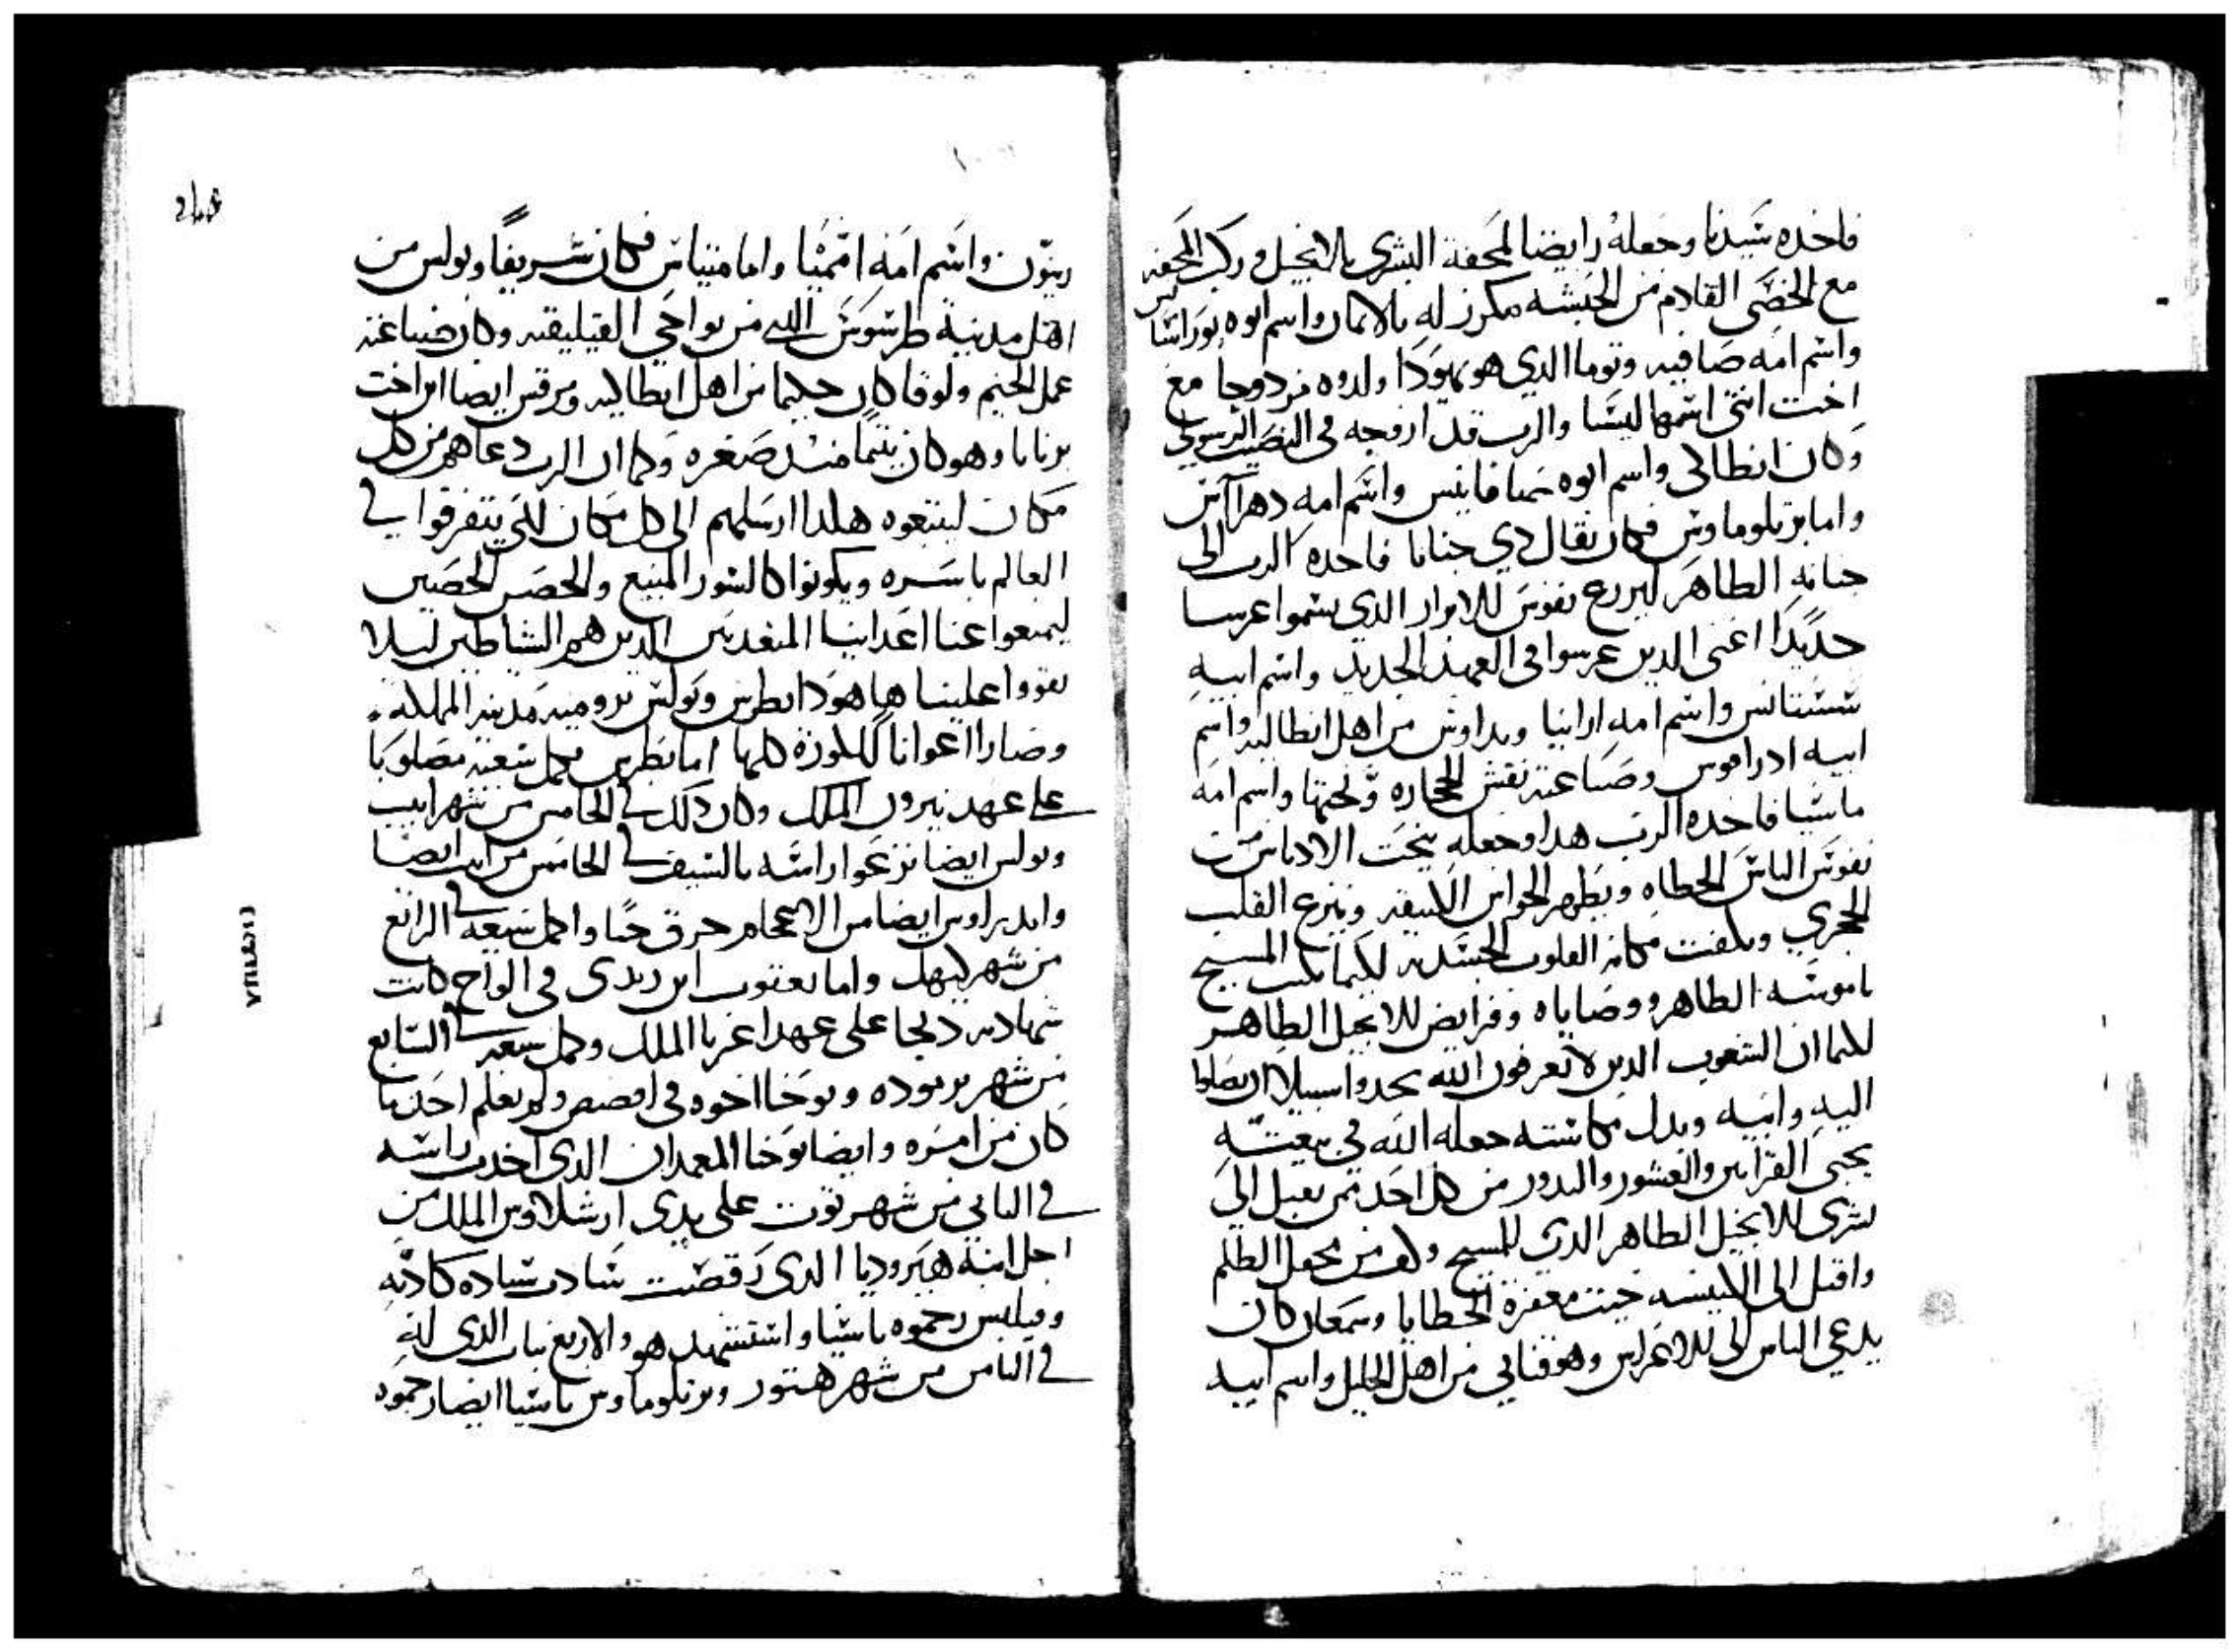 فاخده سيدنا وجعله رايضا لمحفة البشرى بالانجيل وركب المحفه
مع الخصي القادم من الحبشه مكرز له بالايمان واسم ابوه بوراشاس
واسم امه صافيه وتوما الدي هو يهودا ولدوه مزدوجا مع
اخت انثى اسمها ليسا والرب قد ازوجه في النصيب الرسولي
وكان انطاكى واسم ابوه واسم امه
واما برتلوماوس فكان يقال دي جنانا فاخده الرب الى
جنانه الطاهر ليزرع نفوس للابرار الدي يسموا غرسا
جديدا اعنى الدين غرسوا في العهد الجديد واسم ابيه
واسم امه ارانيا واندراوس من اهل انطاكيه واسم
ابيه وصناعته نقش الحجاره ونحتها واسم امه
ماشيا فاخده الرب هدا وجعله ينحت الادناس من
نفوس الناس الخطاه ويطهر الحواس الكثيفه وينزع القلب
الحجري ويلفت مكانه القلوب الجسديه لكيما يكتب المسيح
ناموسه الطاهر ووصاياه وفرايض للانجيل الطاهر
لكيما ان الشعوب الدين لا يعرفون الله يجدوا سبيلا ان يصلوا
اليه وابيه وبدل مكاسته جعله الله في بيعته
يجبى القرابين والعشور والندور من كل احد ممن يقبل الى
بشرى للانجيل الطاهر الدي للمسيح وكف من محفل الظلم
واقبل الى الكنيسه حيث مغفرة الخطايا وسمعان كان
يدعي الناس الى للاعراس وهو قناني من اهل الجليل واسم ابيه
زيتون واسم امه واما متياس فكان شريفا وبولس من
اهل مدينة طرسوس التي من نواحي القيليقيه وكان صناعته
عمل الخيم ولوقا كان حكيما من اهل انطاكيه ومرقس ايضا ابن اخت
برنابا وهو كان يتيما منذ صغره وكما ان الرب دعاهم من كل
مكان ليتبعوه هكدا ارسلهم الى كل مكان لكي يتفرقوا في
العالم باسره ويكونوا كالسور المنيع والحصن الحصين
ليمنعوا عنا اعداينا المنغدين الدين هم الشياطين ليلا
يقووا علينا ها هودا بطرس وبولس بروميه مدينة المملكه
وصاروا اعوانا للكورة كلها اما بطرس فكمل سعيه مصلوبا
على عهد نيرون الملك وكان دلك في الخامس من شهر ابيب
وبولس ايضا نزعوا راسه بالسيف في الخامس من ابيب ايضا
واندراوس ايضا من الاعجام حرق حيا واكمل سعيه في الرابع
من شهر كيهك واما يعقوب ابن زبدى في الواح كانت
شهادته دبحا على عهد اغربا الملك وكمل سعيه في السابع
من شهر برموده ويوحنا اخوه في افسس ولم يعلم احد بما
كان من امره وايضا يوحنا المعمدان الدى اخدت راسه
في الثاني من شهر توت على يدى ارشلاوس الملك من
اجل ابنة هيروديا الدى رقصت
وفيلبس رجموه باسيا واستشهد هو والاربع بنات الدى له
في الثامن من شهر هتور وبرتلوماوس باسيا ايضا رجموه